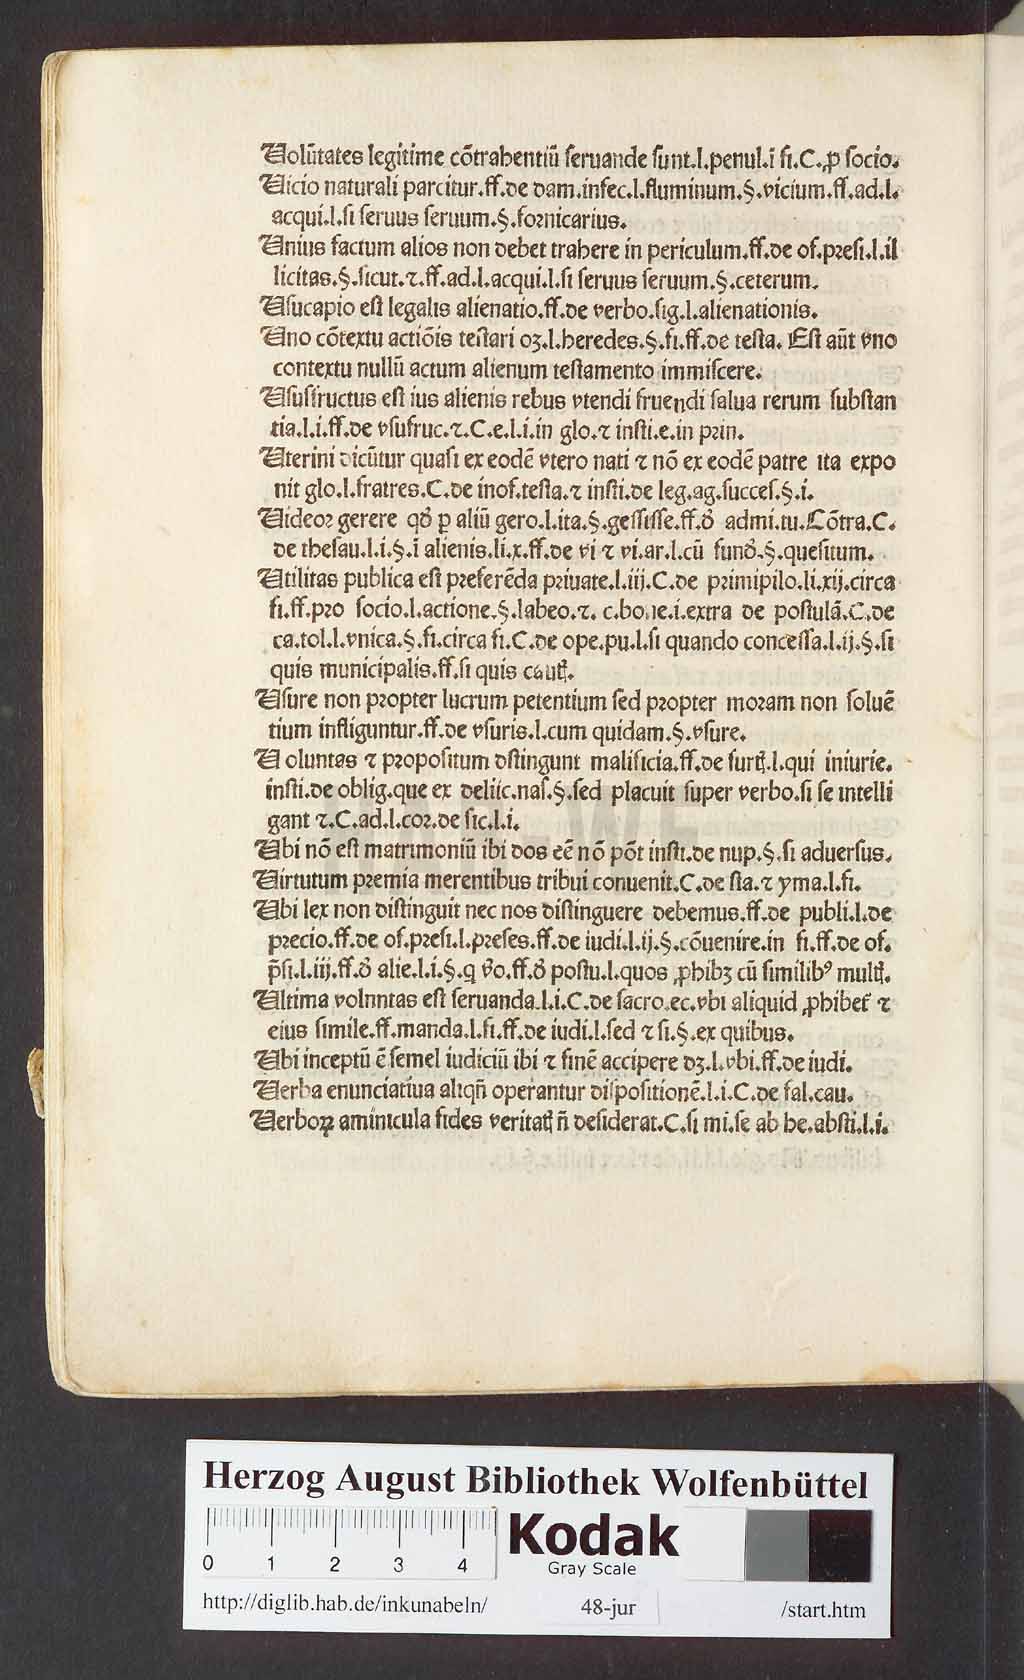 Volūtates legitime cōtrahentiū seruande sunt.l.penul.ī fi.C.ꝓ socio.
Vicio naturali parcitur.ff.de dam.infec.l.fluminum.§.vicium.ff.ad.l.
acqui.l.si seruus seruum.§.fornicarius.
Vnius factum alios non debet trahere in periculum.ff.de of.presi.l.il
licitas.§.sicut.⁊.ff.ad.l.acqui.l.si seruus seruum.§.ceterum.
Vsucapio est legalis alienatio.ff.de verbo.sig.l.alienationis.
Vno cōtextu actiōis testari oꝫ.l.heredes.§.fi.ff.de testa. Est aūt vno
contextu nullū actum alienum testamento immiscere.
Vsusfructus est ius alienis rebus vtendi fruendi salua rerum substan
tia.l.i.ff.de vsufruc.⁊.C.e.l.i.in glo.⁊ insti.e.in prin.
Vterini dicūtur quasi ex eodē vtero nati ⁊ nō ex eodē patre ita expo
nit glo.l.fratres.C.de inof.testa.⁊ insti.de leg.ag.succes.§.i.
Videor gerere qď p aliū gero.l.ita.§.gessisse.ff.ď admi.tu.Cōtra.C.
de thesau.l.i.§.ī alienis.li.x.ff.de vi ⁊ vi.ar.l.cū funď.§.quesitum.
Vtilitas publica est preferēda priuate.l.iij.C.de primipilo.li.xij.circa
fi.ff.pro socio.l.actione.§.labeo.⁊. c.bone.i.extra de postulā.C.de
ca.tol.l.vnica.§.fi.circa fi.C.de ope.pu.l.si quando concessa.l.ij.§.si
quis municipalis.ff.si quis cautꝭ.
Vsure non propter lucrum petentium sed propter moram non soluē
tium infliguntur.ff.de vsuris.l.cum quidam.§.vsure.
Voluntas ⁊ propositum dstingunt malificia.ff.de furtꝭ.l.qui iniurie.
insti.de oblig.que ex deliic.nas.§.sed placuit super verbo.si se intelli
gant ⁊.C.ad.l.cor.de sic.l.i.
Vbi nō est matrimoniū ibi dos eē nō pōt insti.de nup.§.si aduersus.
Virtutum premia merentibus tribui conuenit.C.de sta.⁊ yma.l.fi.
Vbi lex non distinguit nec nos distinguere debemus.ff.de publi.l.de
precio.ff.de of.presi.l.preses.ff.de iudi.l.ij.§.cōuenire.in fi.ff.de of.
p̄si.l.iij.ff.ď alie.l.i.§.q v̊o.ff.ď postu.l.quos ꝓhibꝫ cū similibꝰ multꝭ.
Vltima volnntas est seruanda.l.i.C.de sacro.ec.vbi aliquid ꝓhibet̄ ⁊
eius simile.ff.manda.l.fi.ff.de iudi.l.sed ⁊ si.§.ex quibus.
Vbi inceptū ē semel iudiciū ibi ⁊ finē accipere dꝫ.l.vbi.ff.de iudi.
Verba enunciatiua aliqn̄ operantur dispositionē.l.i.C.de fal.cau.
Verboꝝ aminicula fides veritatꝭ n̄ desiderat.C.si mi.se ab he.absti.l.i.
HAB WF
Herzog August Bibliothek Wolfenbüttel
0 1 2 3 4
Kodak
Gray Scale
http://diglib.hab.de/inkunabeln/ 48-jur /start.htm